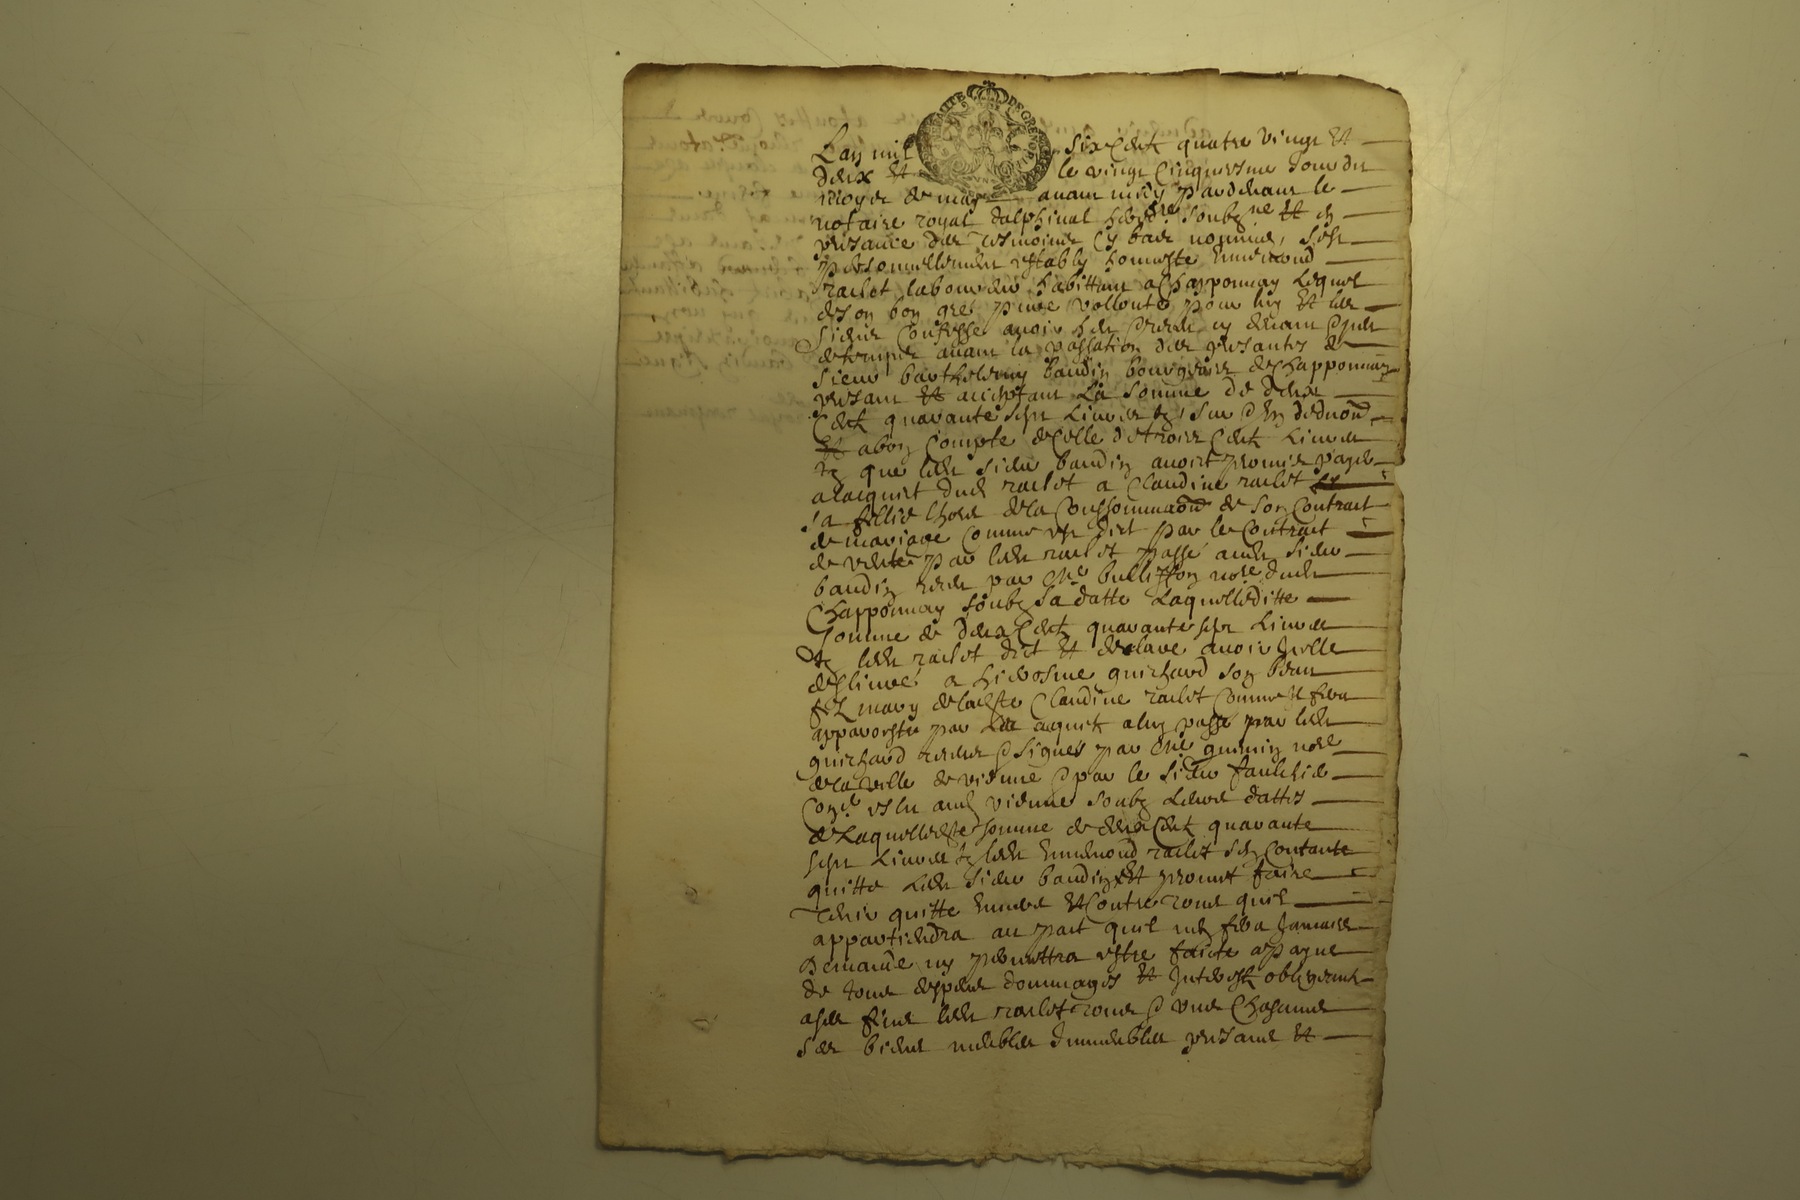 GENERALITE DE GRENOBLE
Lan mil six Cent quatre vingt Et
deux Et le vingt Cinquiesme Jour du
moys de may avant midy pardevant le
notaire royal dalphinal hered.re soubz.ne Et en
presance des tesmoins Cy bas nommes, sest
personnellement estably honneste Ennemond
raclet laboureur habittant a Chapponnay Lequel
de son bon gre pure vollonte pour luy Et les
siens Confesse avoir heu Et receu cy devant
de temps avant la passation des presantes de
sieur barthelemy baudin bourgeois de Chapponnay
presant Et acceptant La Somme de deux
Cent quarante sept Livres tz, sur Et en deduon
Et a bon Compte de Celle de trois Cent Livres
tz que led sieur baudin avoit promis payer
a lacquict dud raclet a Claudine raclet
sa fillie lhors de la Conssommaon de son Contract
de mariage Comme est dict par le Contract
de vente par led raclet passe aud sieur
baudin receu par Me bullisson no.re dud
Chapponnay soubz sa datte Laquelleditte
somme de deux Cent quarante sept Livres
tz led raclet dict Et desclare avoir Icelle
deslivre a hierosme guichard son beau
filz mary de ladite Claudine raclet Comme Il fera
apparoistre par Les acquit a luy passe par led
guichard receu Et signes par Me no.re
de la ville de vienne Et par le sieur faulchie
eslu aud vienne soubz Leurs dattes
de Laquelledite somme de deux Cent quarante
sept Livres tz led Ennemond raclet sen Contante
quitte Led sieur baudin Et promet faire
tenir quitte Envers Et Contre tous quil
appartiendra au pact quil nen fera Jamais
demande ny permettra estre faicte a payne
de tous despens dommages Et Interestz obligeant
a ses fins led raclet tous Et uns Chascuns
ses biens meubles Immeubles presans Et